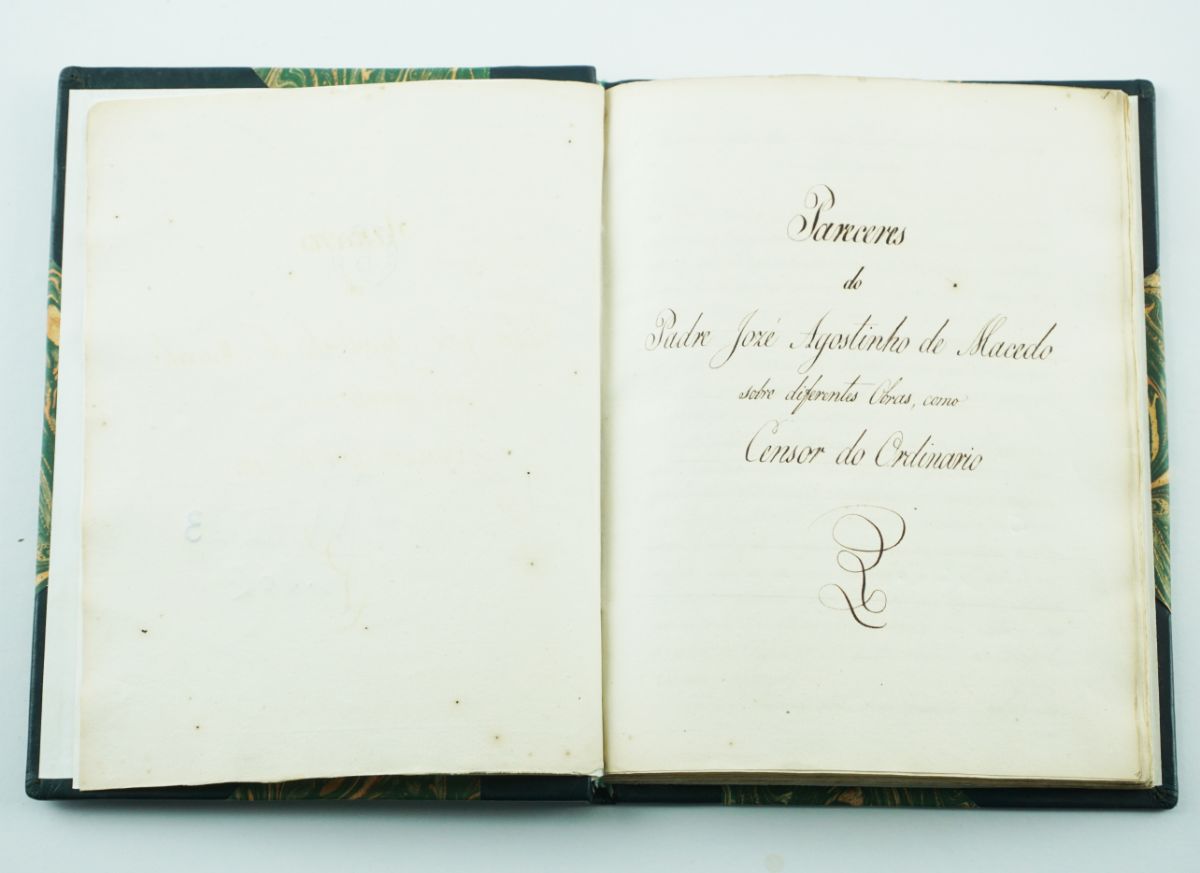 Pareceres
do
Padre Jozé Agostinho de Macedo
sobre diferentes Obras, como
Censor do Ordinario